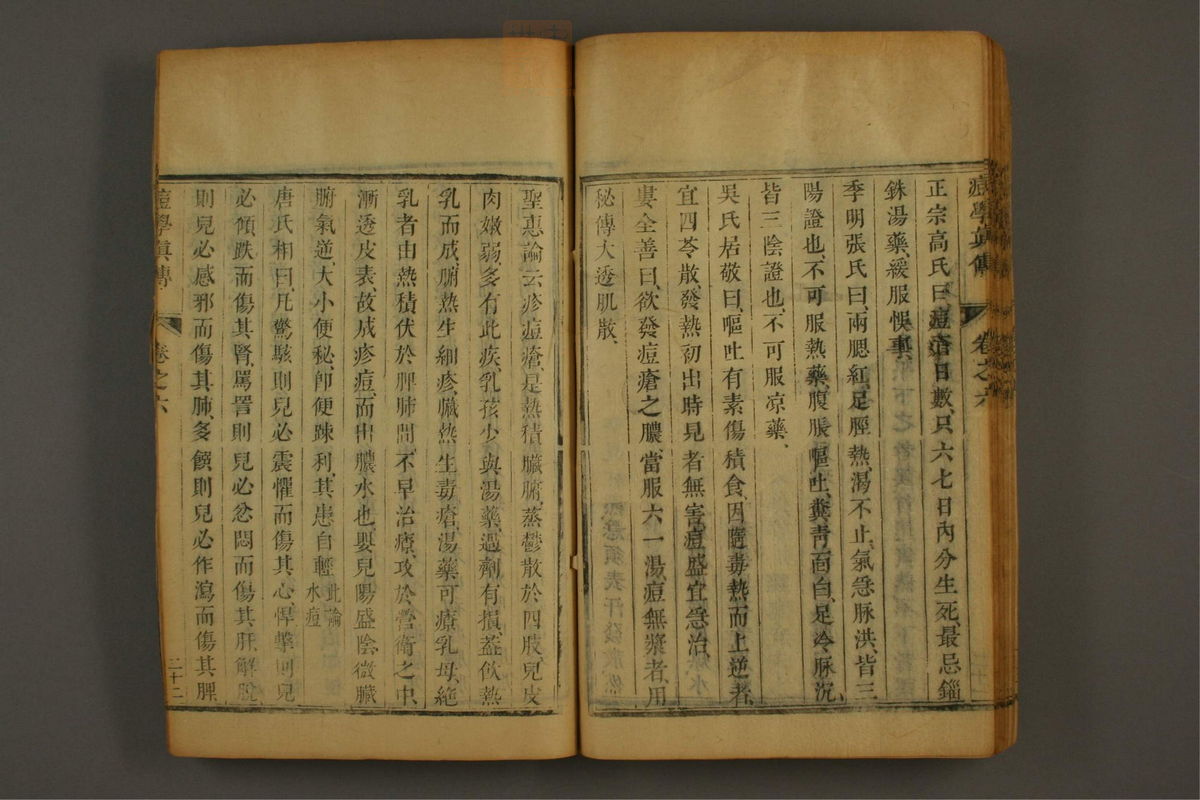 痘學眞傳 卷之六
正宗高氏曰、痘瘡日數、只六七日內分生死、最忌錙
銖湯藥、緩服悞事、
季明張氏曰、兩腮紅、足脛熱、渴不止、氣急脉洪、皆三
陽證也、不可服熱藥、腹脹嘔吐、糞靑面白、足冷脉沉、
皆三陰證也、不可服凉藥、
吳氏居敬曰、嘔吐有素傷積食、因隨毒熱而上逆者、
宜四苓散、發熱初出時見者無害、痘盛宜急治、
婁全善曰、欲發痘瘡之膿、當服六一湯、痘無漿者、用
秘傳大透肌散、
聖惠論云、疹痘瘡、是熱積臟腑、蒸鬱散於四肢、兒皮
肉嫩弱、多有此疾、乳孩少與湯藥、過劑有損、蓋飮熱
乳而成、腑熱生細疹、臟熱生毒瘡、湯藥可療、乳母、絕
乳者、由熱積伏於脾肺間、不早治療、攻於營衛之中、
漸透皮表、故成疹痘、而出膿水也、嬰兒陽盛陰微、臟
腑氣逆、大小便秘、卽便踈利、其患自輕 此論水痘
唐氏相曰、凡驚駭則兒必震懼而傷其心、悍擊則兒
必傾跌而傷其腎、罵詈則兒必忿悶而傷其肝、解脫
則兒必感邪而傷其肺、多餧則兒必作瀉而傷其脾
痘學眞傳 卷之六 二十二